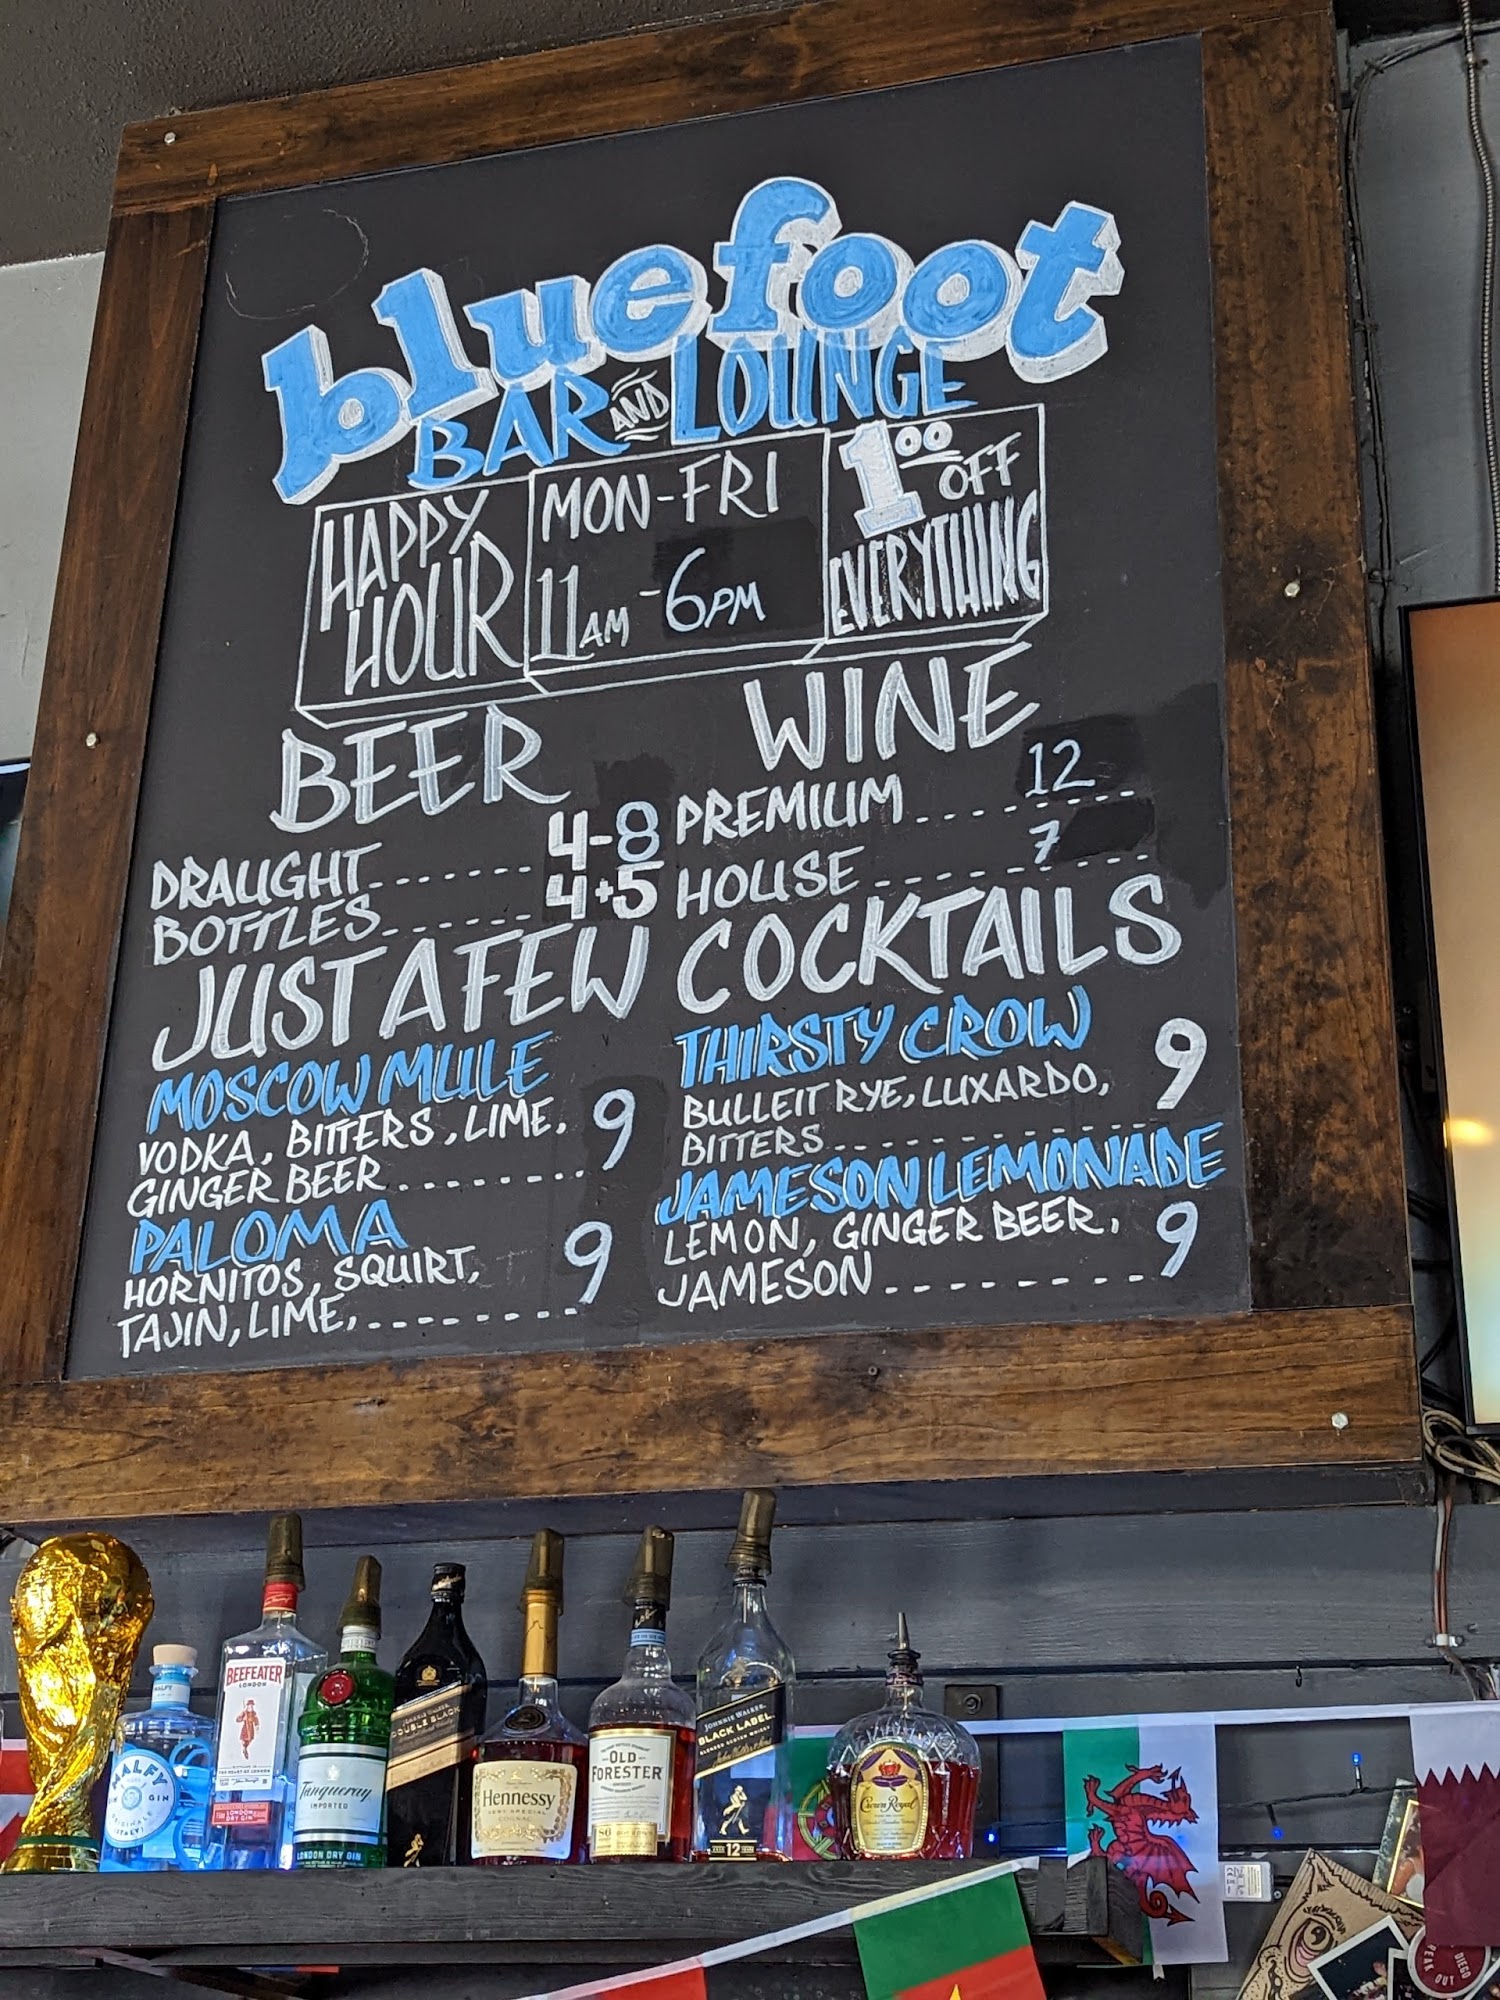 bluefoot
BAR AND LOUNGE
HAPPY
HOUR
MON-FRI
11AM-6PM
1.00 OFF
EVERYTHING
BEER
DRAUGHT 4-8
BOTTLES 4+5
WINE
PREMIUM 12
HOUSE 7
JUST A FEW COCKTAILS
MOSCOW MULE
VODKA, BITTERS, LIME,
GINGER BEER 9
PALOMA
HORNITOS, SQUIRT,
TAJIN, LIME, 9
THIRSTY CROW
BULLEIT RYE, LUXARDO,
BITTERS 9
JAMESON LEMONADE
LEMON, GINGER BEER,
JAMESON 9
MALFY
GIN GIN
BEEFEATER
LONDON
LONDON
DRY GIN
Tanqueray
IMPORTED
LONDON DRY GIN
DOUBLE BLACK
Hennessy
VERY SPECIAL
COGNAC
OLD
FORESTER
86
JOHNNIE WALKER
BLACK LABEL
BLENDED SCOTCH WHISKY
12
Crown Royal
DIEGO
PEAK OUT